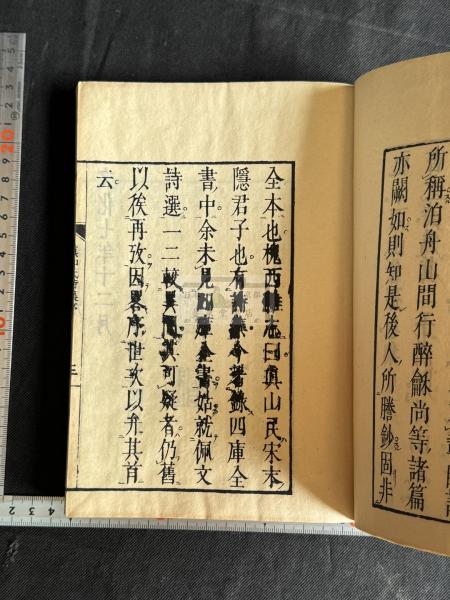 所稱泊舟山間行醉龢尚等諸篇
亦闕如則知是後人所謄鈔固非
全本也槐西雜志曰眞山民宋末
隱君子也有詩集今著錄四庫全
書中余未見
書姑就佩文
詩選一二較異同其可疑者仍舊
以俟再攷因畧序世次以弁其首
云
化七年十二月
三